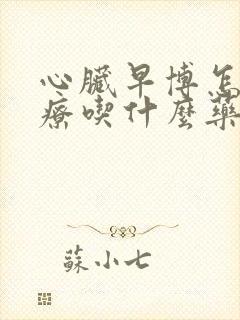 心臟早博怎
療喫什麼藥
蘇小七